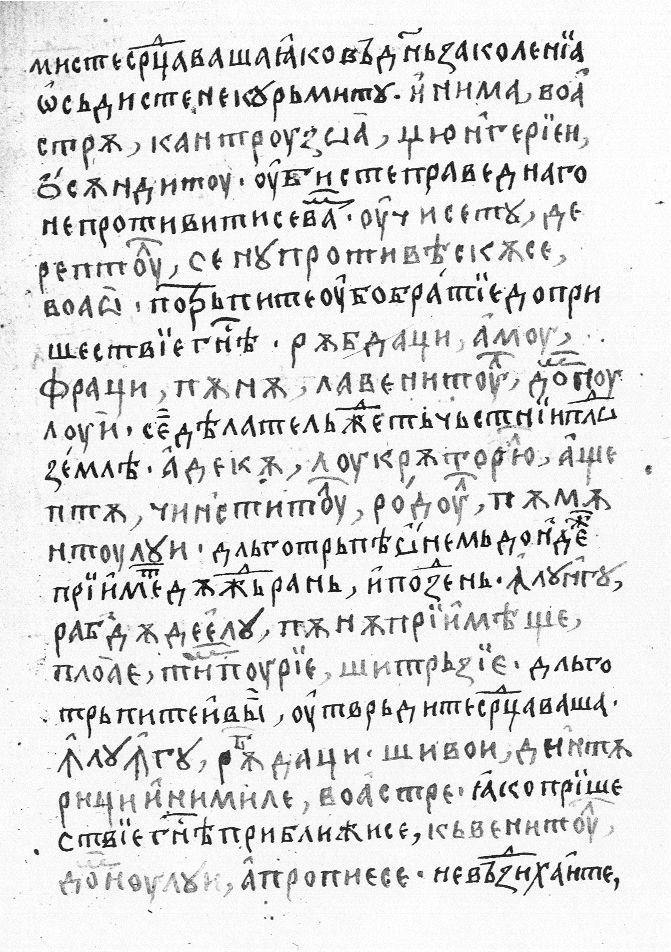 мистесрⷣцавашаꙗковъдн҃ьзаколенїа
ѡсьдистенекурьмиту· ѝнима, воа̂
стрѫ, кантроуꙁша̂, цюн̂герїей,
ѡ́сѫндитоу· ѹ̂бистеправеднаго
непротивитисева̂ⷨ· ѹ̂чисету, де
рептѹⷧ, сенупротивѣскѫсе,
воаѡ̂· порьпитеѹ̂бобратїедопри
шествїегн҃ѣ· рѫбдаци, а̂моу,
фраци, пѫнѫ, лавенитѹⷧ, дом̂ноу
лоуй· сеⷣѣлательжⷣетьчьестнїйплѡⷣ
землѣ· а̂декѫ, лоукрѫторю̂ⷧ, а̂ще
птѫ, чинститѹⷧ, родѹⷧ, пѫмѫ
нтоулуи· дльготрьпѣѡ̂немьдойⷣеⷤ
прїим̂еⷮдѫжⷣьрань, ѝпоꙁⷣень· ꙟ̂лун̂гу,
рабⷣѫдеел̂у, пѫнѫпрїим̂ѣще,
плоа̂е, тин̂поурїе, шитрьꙁїе· дльго
трьпитеѝвы̏, ѹ̂тврьдитесрⷣцаваша·
ꙟ̂луꙟ̂гу, рѫⷠдаци· шивой, дein̂тѫ
рицийнимиле, воа̂стре· ꙗкопрїше
ствїегн҃ѣприближисе, кьвенитѹⷧ,
домⷨноулуи, а̂пропиесе· невъꙁⷣихайте,